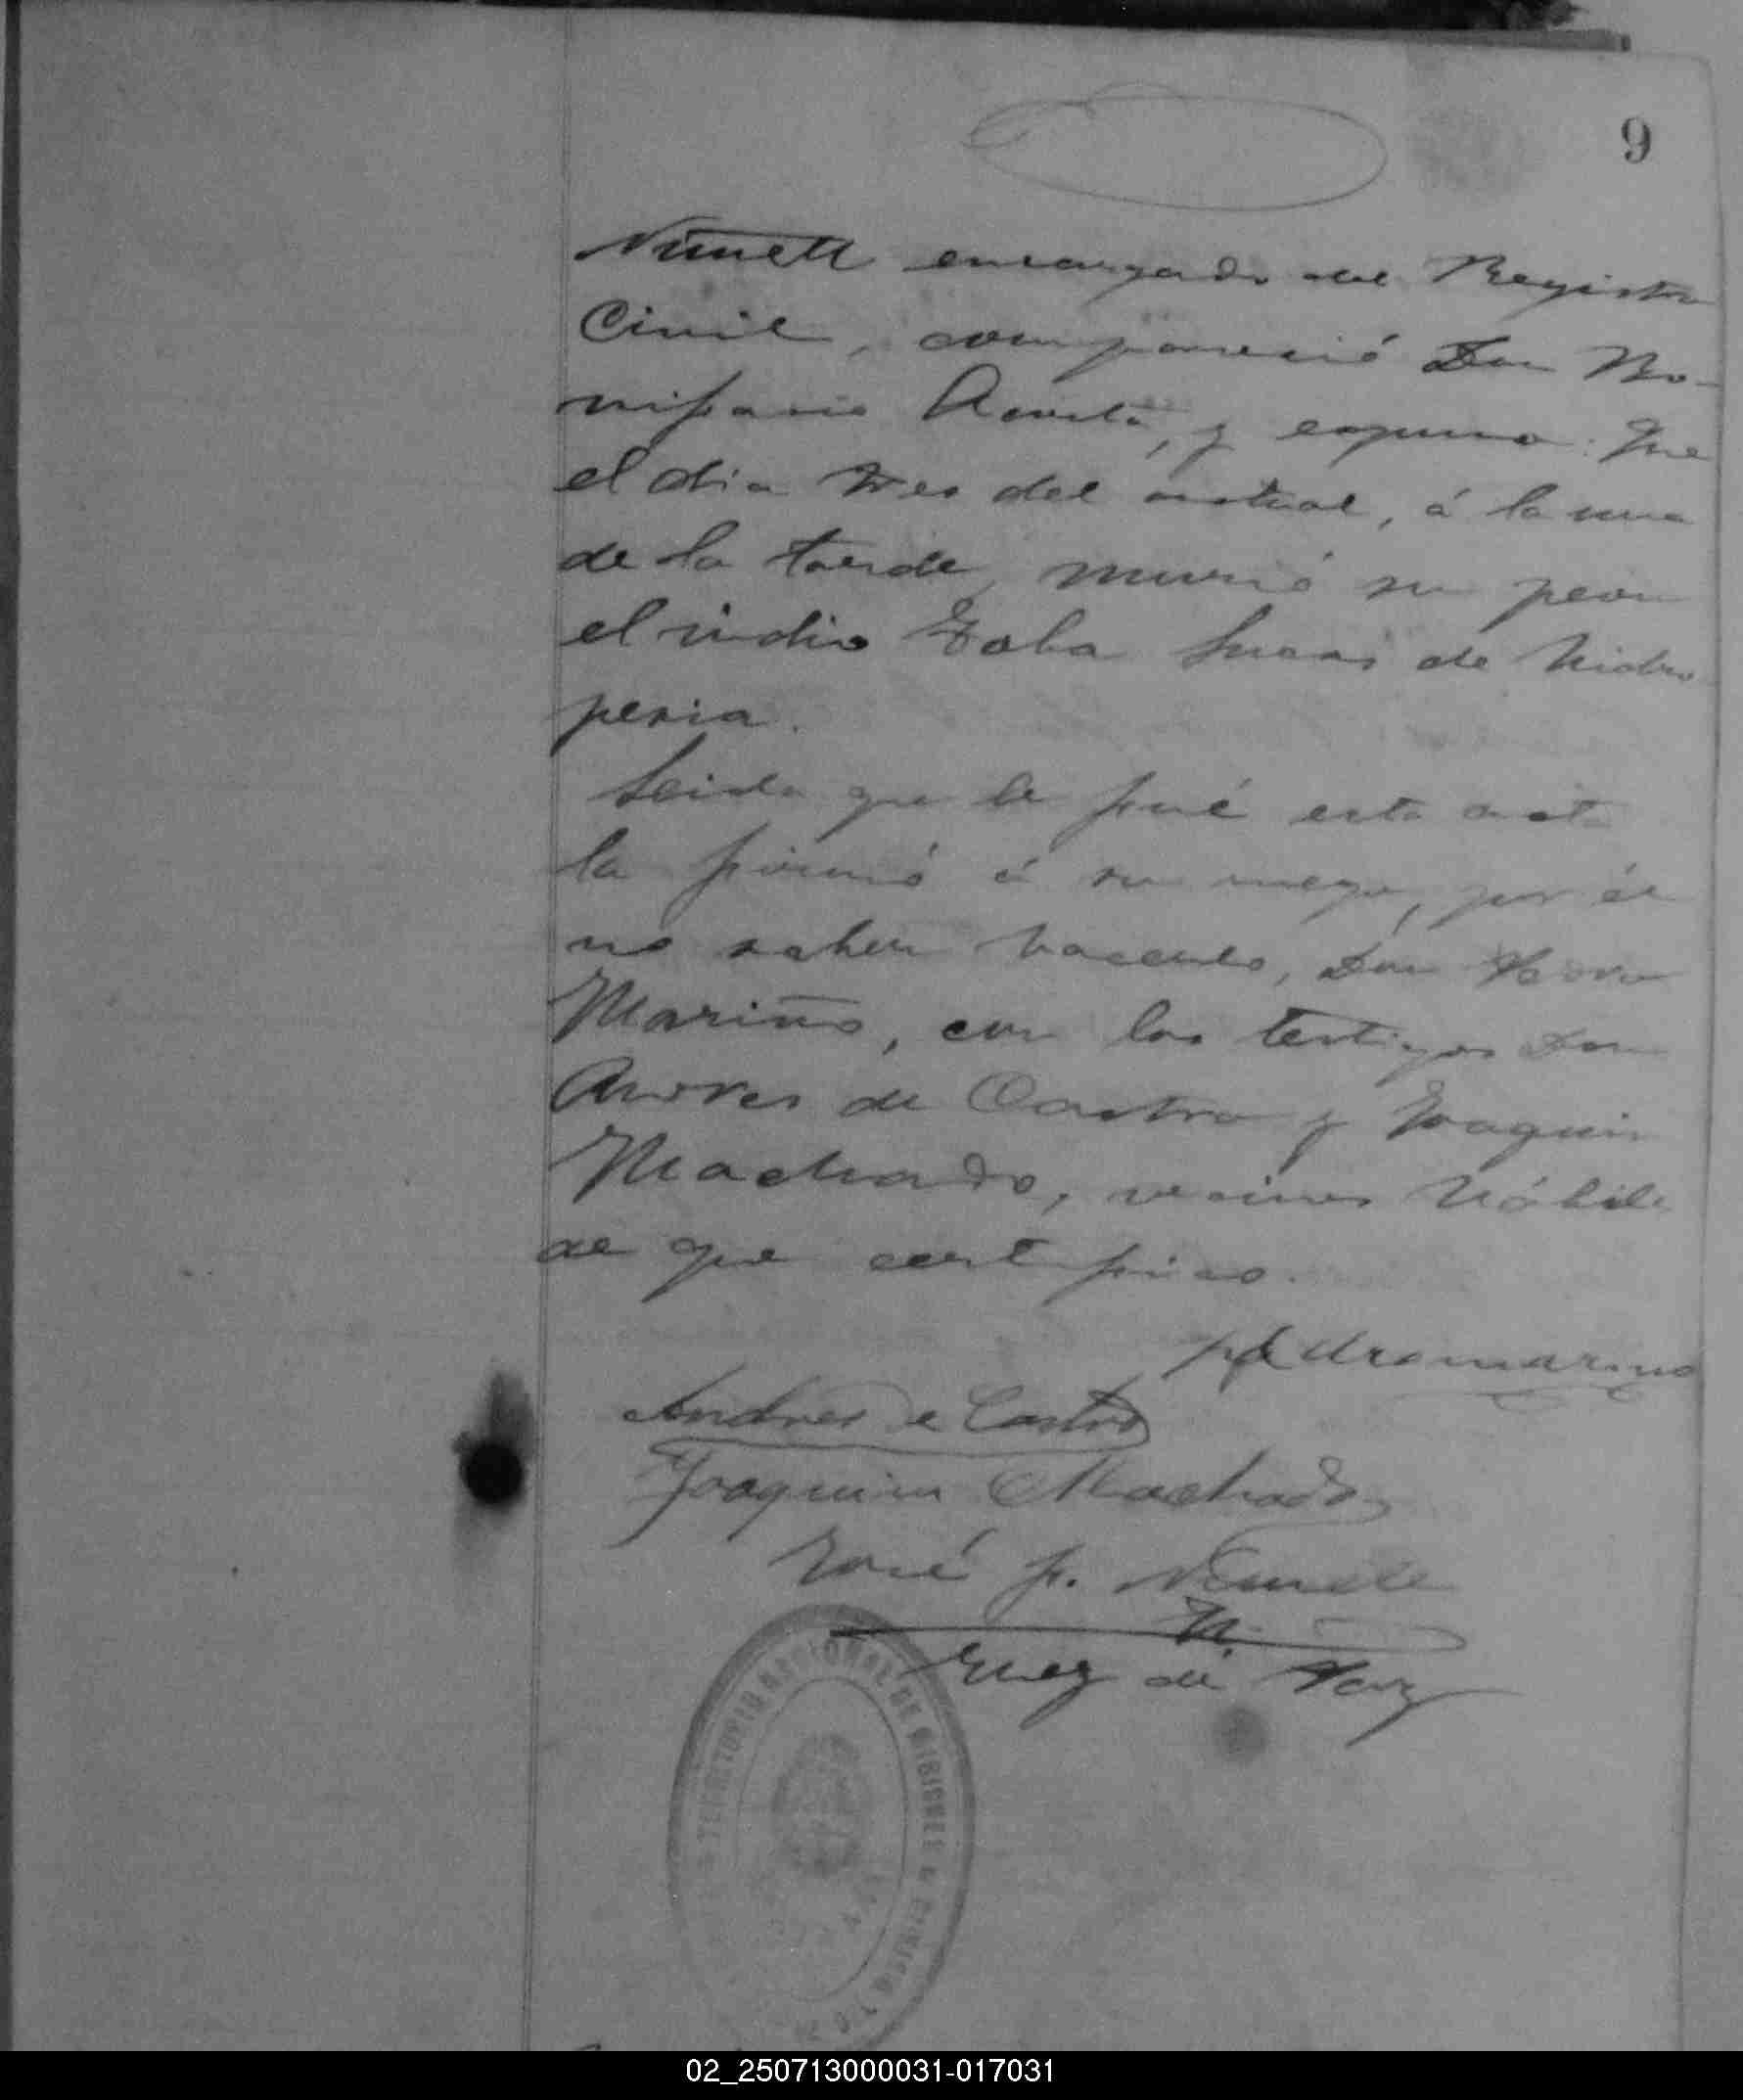 9
Nunell encargado del Registro
Civil, compareció Don Bo-
nifacio Acosta, y expuso: Que
el dia tres del actual, á la una
de la tarde, murió su peon
el indio Toba Lucas de hidro
pesia.
Leida que le fué esta acta
la firmó á su ruego, por él
no saber hacerlo, Don Pedro
Mariño, con los testigos Don
Andres de Castro y Joaquin
Machado, vecinos hábiles
de que certifico.
pedro mariño
Andres de Castro
Joaquin Machado
José F. Nunell
Juez de Paz
TERRITORIO NACIONAL DE MISIONES
02_250713000031-017031